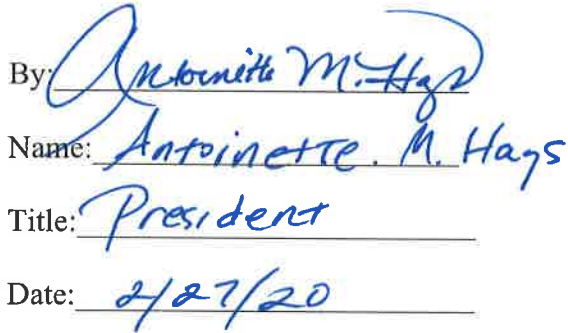 By: Antoinette M. Hays
Name: Antoinette. M. Hays
Title: President
Date: 2/27/20